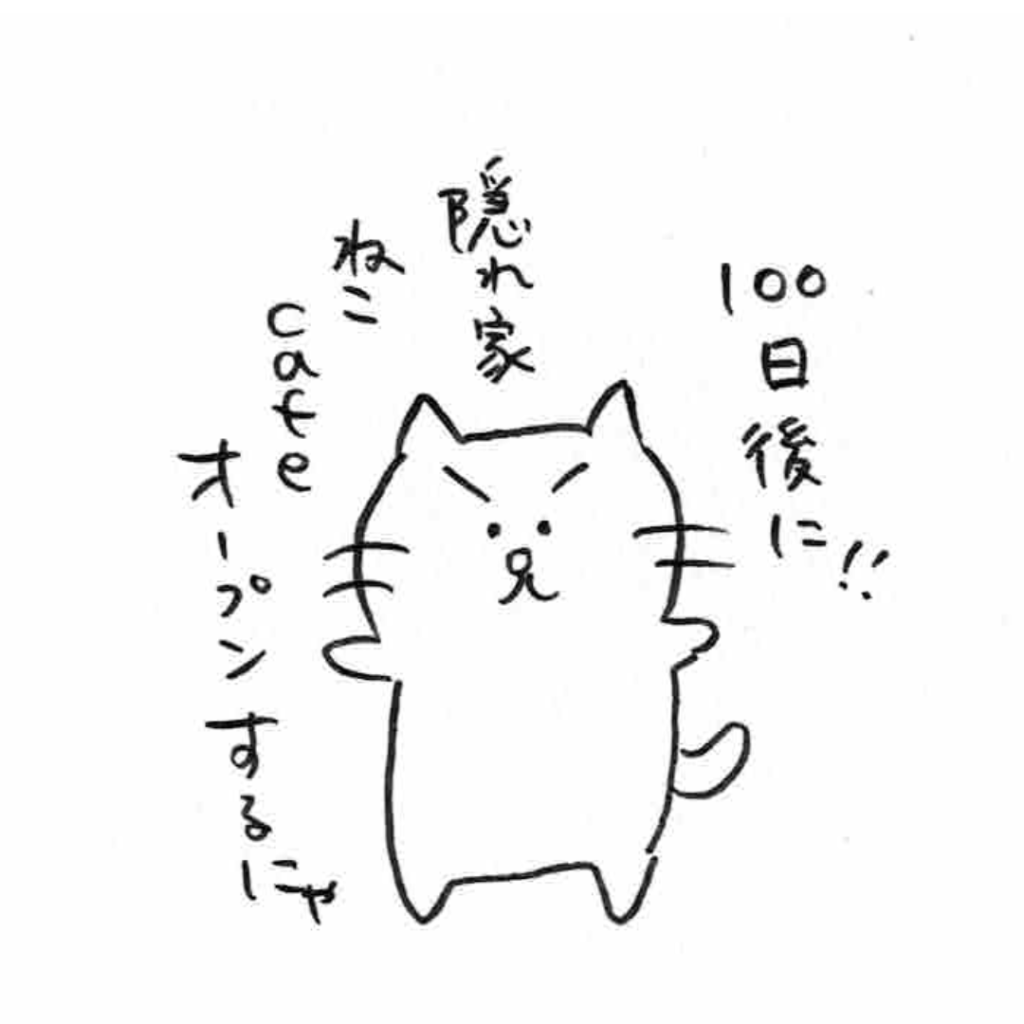 100日後に!!
隠れ家
ねこ
cafe
オープンするにゃ